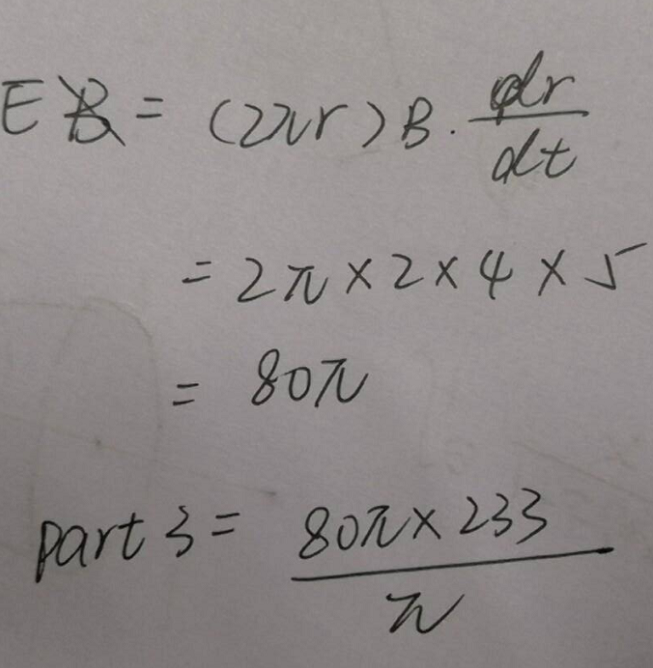 E = (2πr)B · dr/dt
= 2π×2×4×5
= 80π
part 3 = 80π×233/π